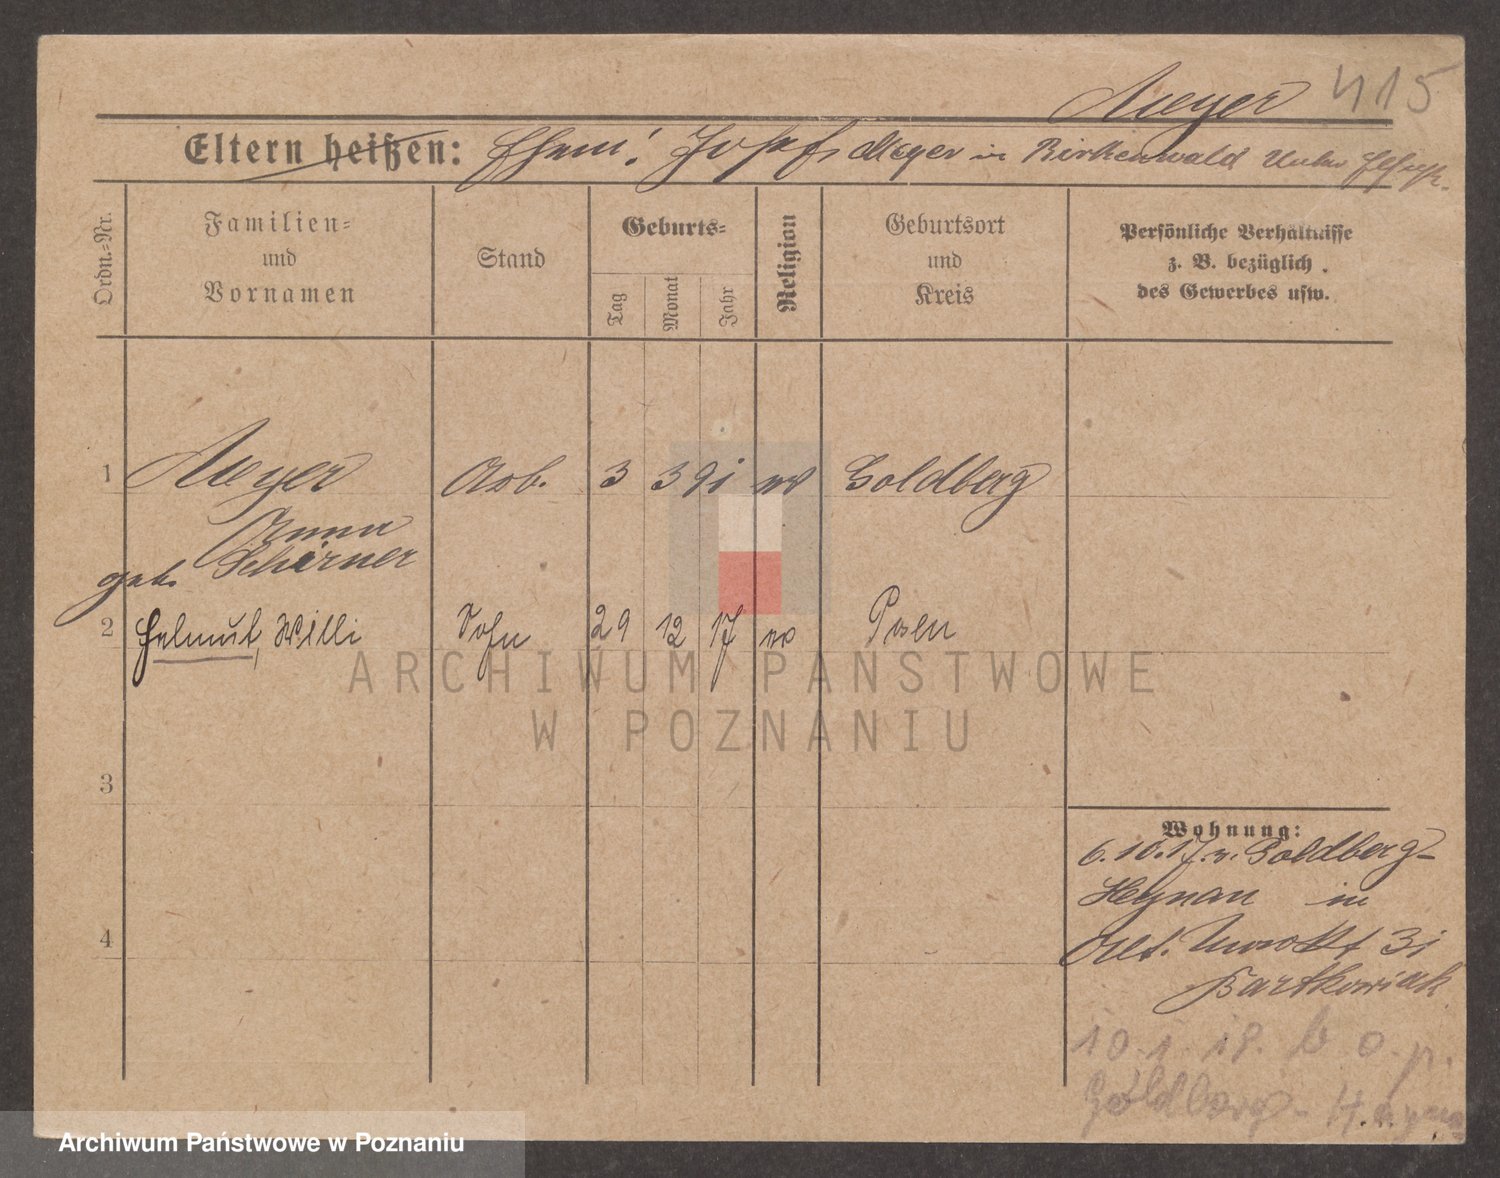 Meyer 415
Eltern heißen: Ehem: Josef Meyer in Birkenwald Unter Elsaß.
Ordn.-Nr.
Familien-
und
Vornamen
Stand
Geburts-
Tag
Monat
Jahr
Religion
Geburtsort
und
Kreis
Persönliche Verhältnisse
z. B. bezüglich
des Gewerbes usw.
1 Meyer Arb. 3 3 91 ev Goldberg
Anna
geb. Schirner
2 Helmut, Willi Sohn 29 12 17 ev Posen
ARCHIWUM PAŃSTWOWE
W POZNANIU
3
Wohnung:
6.10.17. v. Goldberg-
Heynau in
4
Alt. Markt 31
Bartkowiak
10.1.18. b o. p.
Goldberg-Hayna
Archiwum Państwowe w Poznaniu